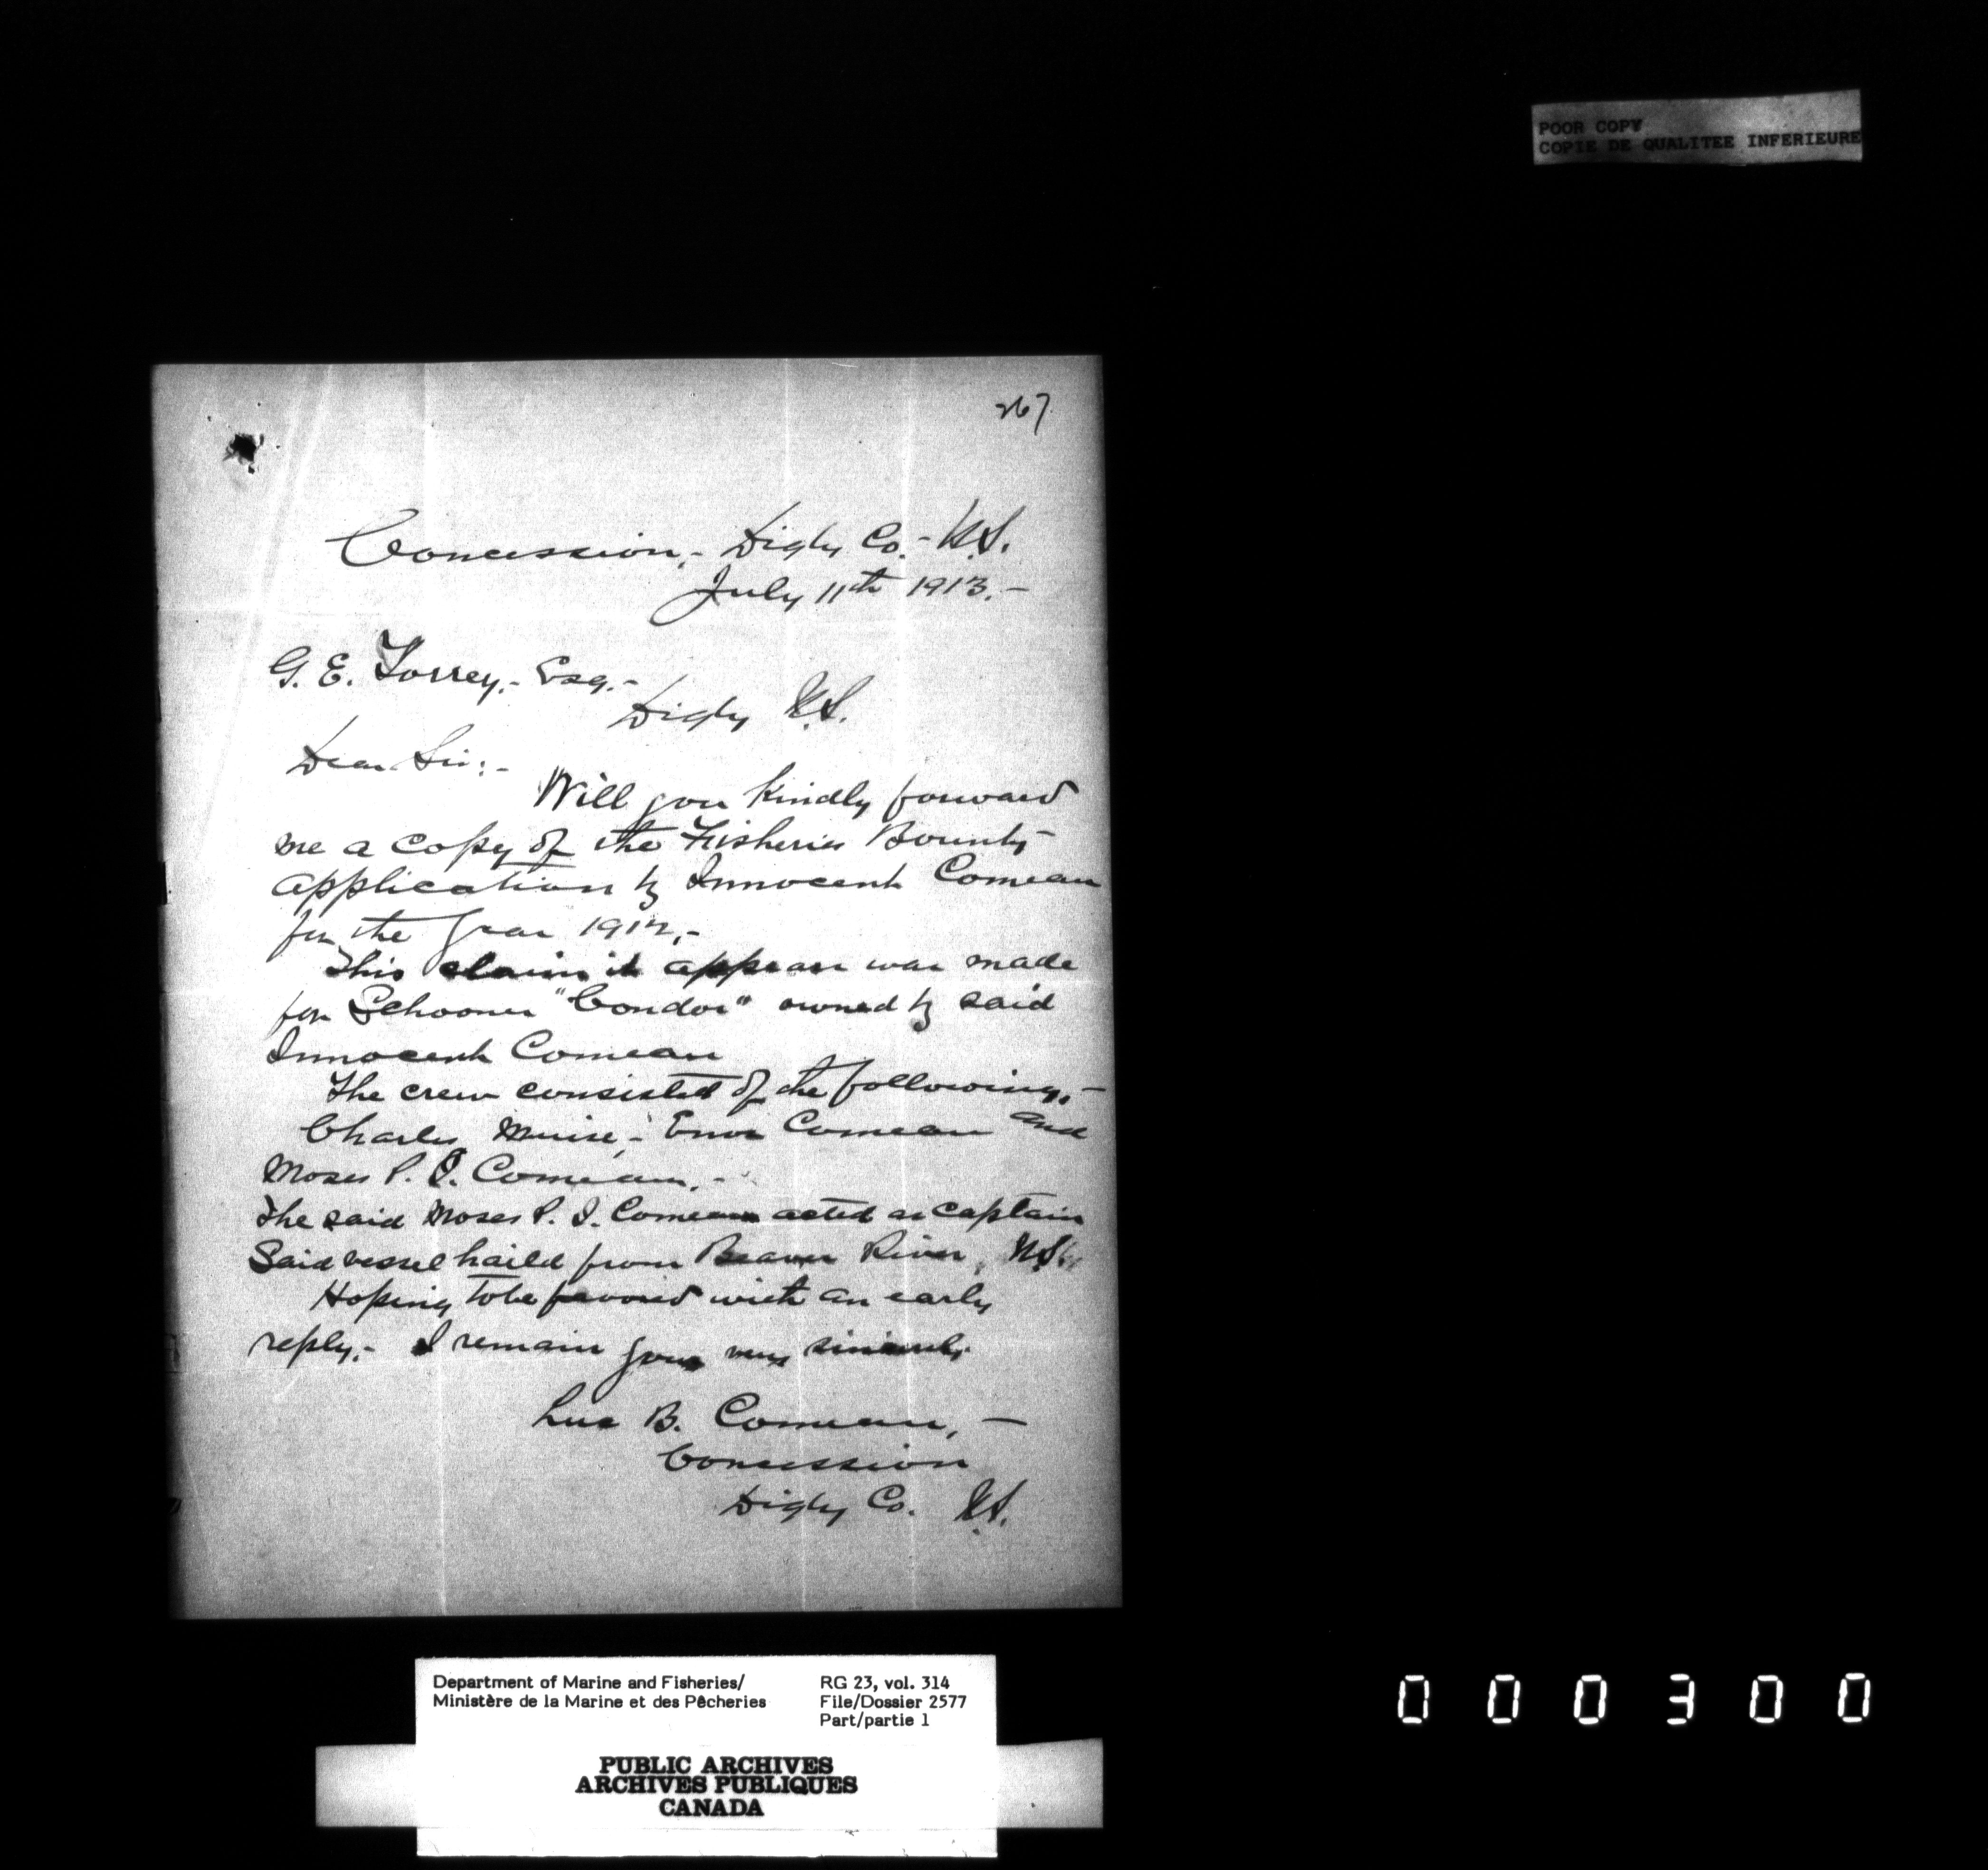 POOR COPY
COPIE DE QUALITEE INFERIEURE
267
Concession,- Digby Co.- N.S.
July 11th 1913.-
G. E. Torrey,- Esq.-
Digby N.S.
Dear Sir:-
Will you kindly forward
me a copy of the Fisheries Bounty
application by Innocent Comeau
for the year 1912,-
This claim it appears was made
for Schooner "Condor" owned by said
Innocent Comeau
The crew consisted of the following,-
Charles Muise,- Enos Comeau and
Moses P. I. Comeau,-
The said Moses P. I. Comeau acted as captain
Said vessel haild from Beaver River, N.S.
Hoping to be favored with an early
reply,- I remain yours very sincerely
Luc B. Comeau,-
Concession
Digby Co. N.S.
Department of Marine and Fisheries/
Ministère de la Marine et des Pêcheries
RG 23, vol. 314
File/Dossier 2577
Part/partie 1
PUBLIC ARCHIVES
ARCHIVES PUBLIQUES
CANADA
000300